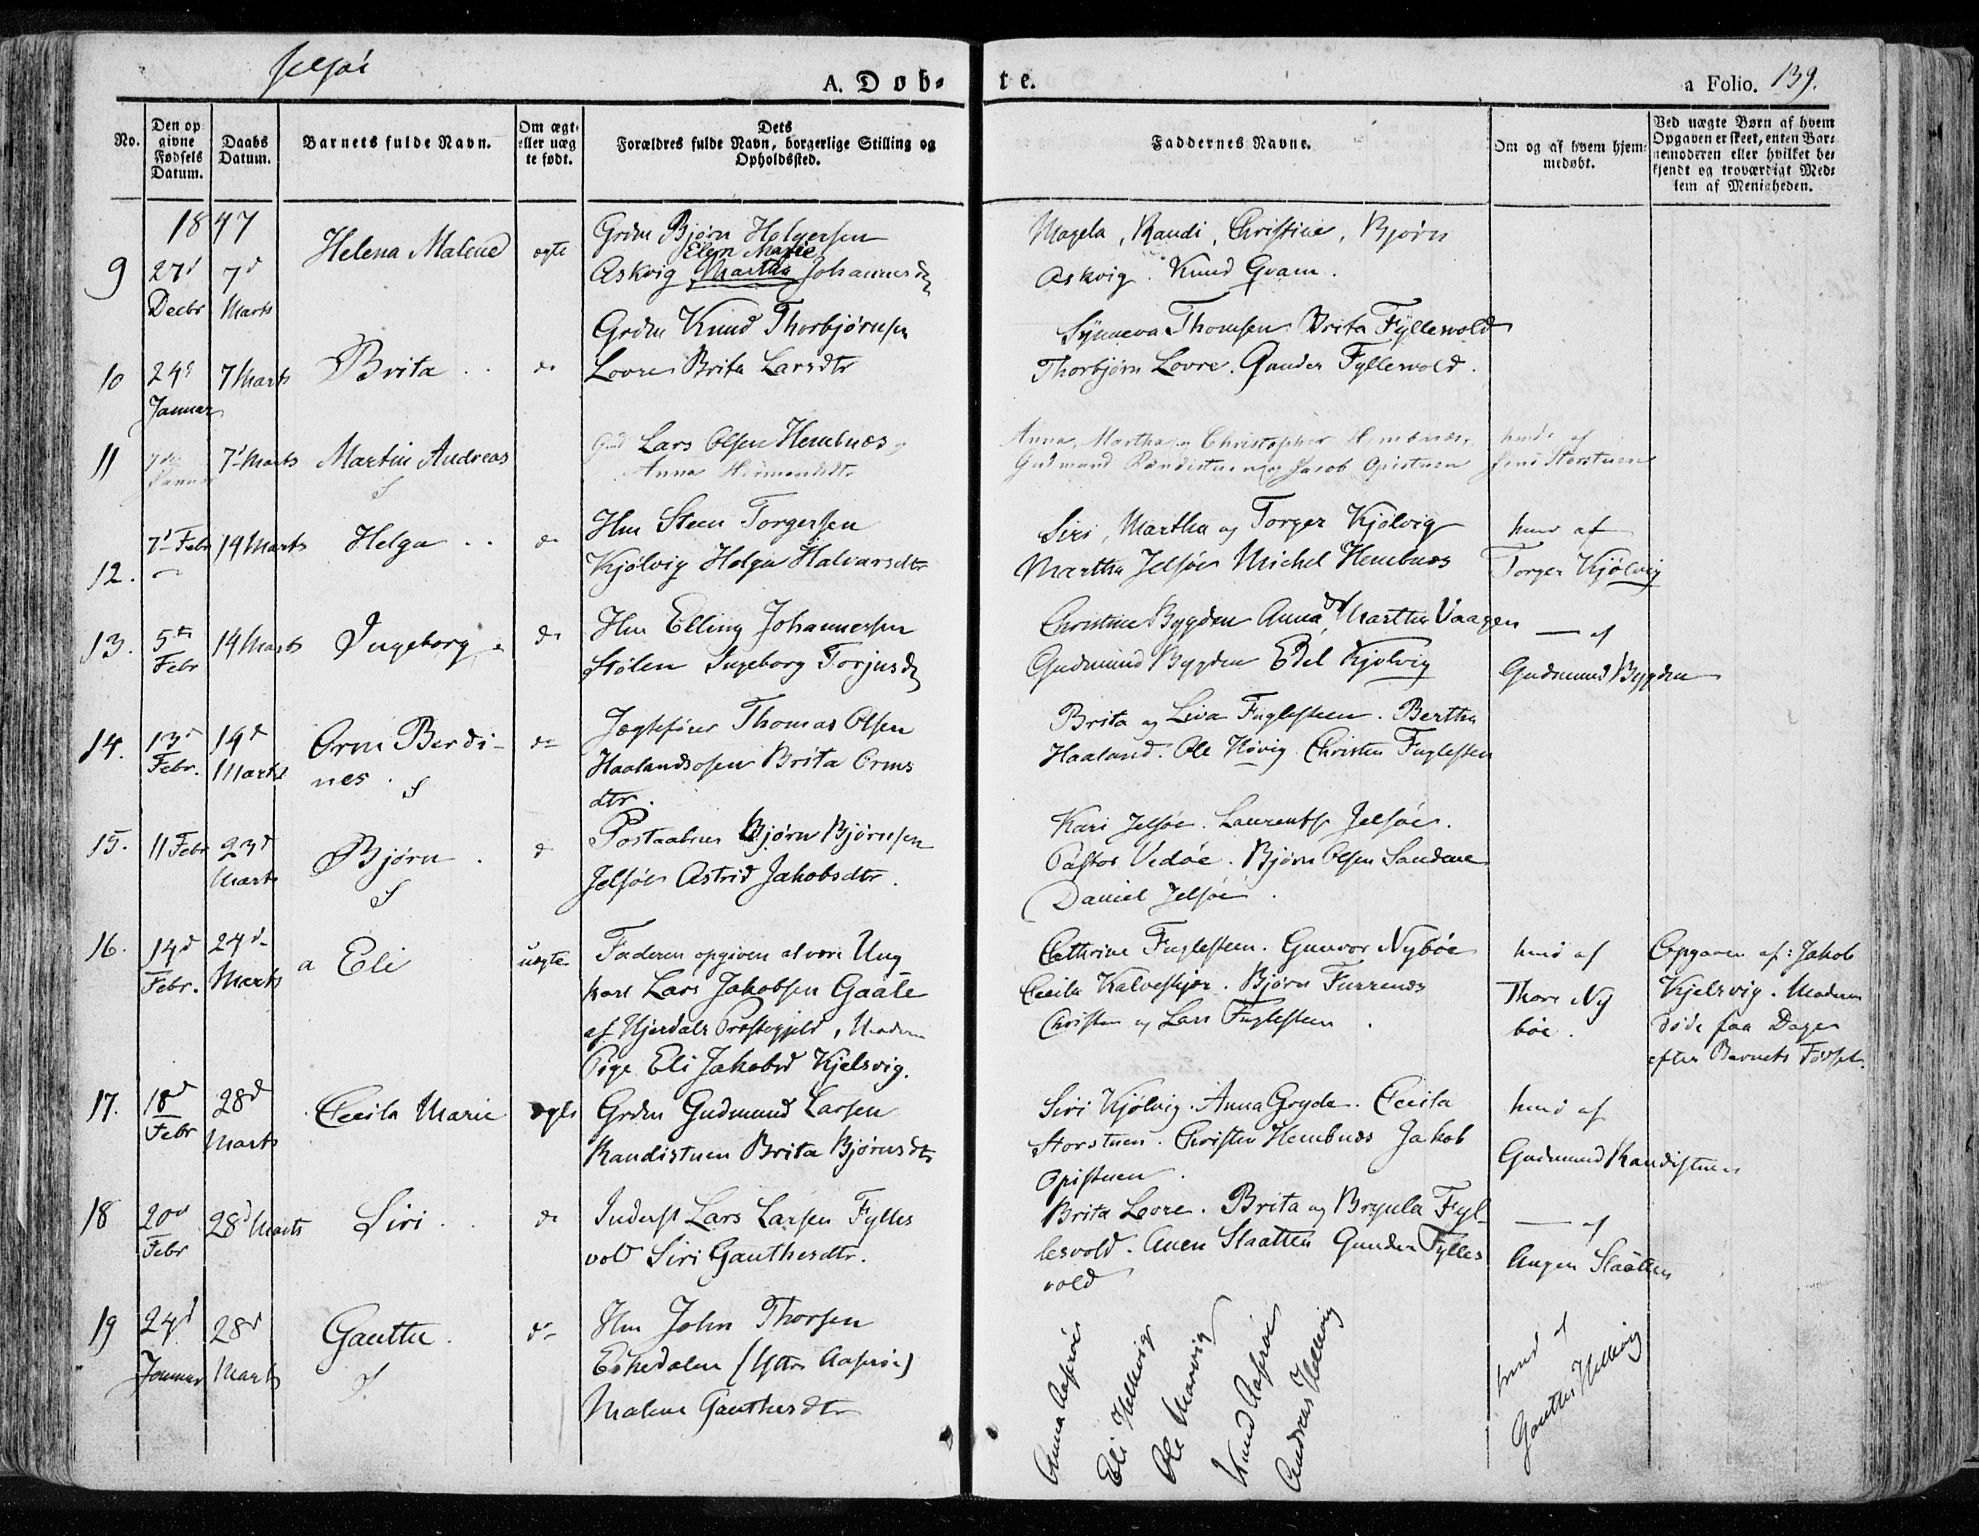 Jelsøe
A. Døb-
te.
a Folio. 139.
No.
Den op
givne
Fødsels
Datum.
Daabs
Datum.
Barnets fulde Navn.
Om ægt-
eller uæg
te født.
Dets
Forældres fulde Navn, borgerlige Stilling og
Opholdssted.
Faddernes Navne.
Om og af hvem hjem-
medøbt.
Ved uægte Børn af hvem
Opgaven er skeet, enten Bar-
nemoderen eller hvilket be-
kjendt og troværdigt Med-
lem af Menigheden.
1847
9
27d
Decbr
7d
Marts
Helena Malene
ægte
Grdm Bjørn Holgersen
Elen Marie
Askvig Martha Johannesd
Magela, Randi, Christine, Bjørn
Askvig. Knud Gvam.
10
24d
Januar
7 Marts
Brita
do
Grdm Knud Thorbjørnsen
Lovre Brita Larsdtr
Synneva Thomsen Brita Fyllesvold
Thorbjørn Lovre. Gunder Fyllesvold.
11
7de
Januar
7d Marts
Martin Andreas
S
Grd Lars Olsen Hembnæs,
Anna Hermundsdtr
Anna, Martha og Christopher Hembnæs,
Gudmund Randistuen og Jacob Opistuen
hmd. af
Jens Storstuen
12.
7d Febr
14 Marts
Helga
do
Hm Steen Torgersen
Kjølvig Helga Halvarsdtr
Siri, Martha og Torger Kjølvig
Martha Jelsøe Michel Hembnæs
hmd af
Torger Kjølvig
13.
5te
Febr
14 Marts
Ingeborg
do
Hm Elling Johannessen
Stølen Ingeborg Torjusd
Christine Bygden Anna, Martha Vaagen
Gudmund Bygden Edel Kjølvig
— af
Gudmund Bygden
14.
13d
Febr.
14d
Marts
Orm Berdi-
nes.
S
do
Jægtefører Thomas Olsen
Haalandsosen Brita Orms
dtr.
Brita og Liva Fuglesteen. Bertha
Haaland. Ole Høvig. Christen Fuglesteen
15.
11 Febr
23d
Marts
Bjørn
S
do
Postaabner Bjørn Bjørnsen
Jelsøe Astrid Jakobsdtr.
Kari Jelsøe. Laurents Jelsøe.
Pastor Vedøe. Bjørn Olsen Sandene
Daniel Jelsøe.
16.
14d
Febr.
24d
Marts
a Eli
uægte
Faderen opgiven at være Ung
karl Lars Jakobsen Gaale
af Hjerdals Præstegjeld, Moderen
Pige Eli Jakobsd Kjelsvig.
Cathrine Fuglesteen. Gunvor Nybøe
Cecila Kalveskjær. Bjørn Furrenæs
Christen og Lars Fuglesteen.
hmd af
Thore Ny
bøe.
Opgaven af: Jakob
Kjelsvig. Moderen
døde faa Dage
efter Barnets Fødsel.
17.
18d
Febr
28d
Marts
Cecila Marie
ægte
Grdm Gudmund Larsen
Randistuen Brita Bjørnsdtr
Siri Kjølvig. Anna Gryde. Cecila
Storstuen. Christen Hembnæs Jakob
Opistuen.
hmd af
Gudmund Randistuen
18
20d
Febr
28d Marts
Siri
do
Inderst Lars Larsen Fylles
vold Siri Gauthesdtr.
Brita Lovre. Brita og Brynla Fyl-
lesvold. Auen Slaatten Gunder Fylles
vold
— af
Augen Slaatten
19
24d
Januar
28d
Marts
Gauthe.
S
do
Hm John Thorsen
Eskedalen (Yttre Aasrøe)
Malene Gauthesdtr
Anna Aasrøe
Eli Hellevig
Ole Marvig
Knud Aasrøe
Andreas Hellevig
hmd af
Gauthe Hellevig